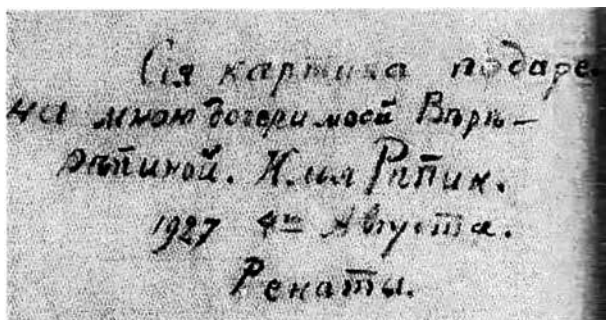 Сія картина подаре-
на мною дочери моей Вѣрѣ –
Рѣпиной. Илья Рѣпин.
1927 4го Августа.
Пенаты.